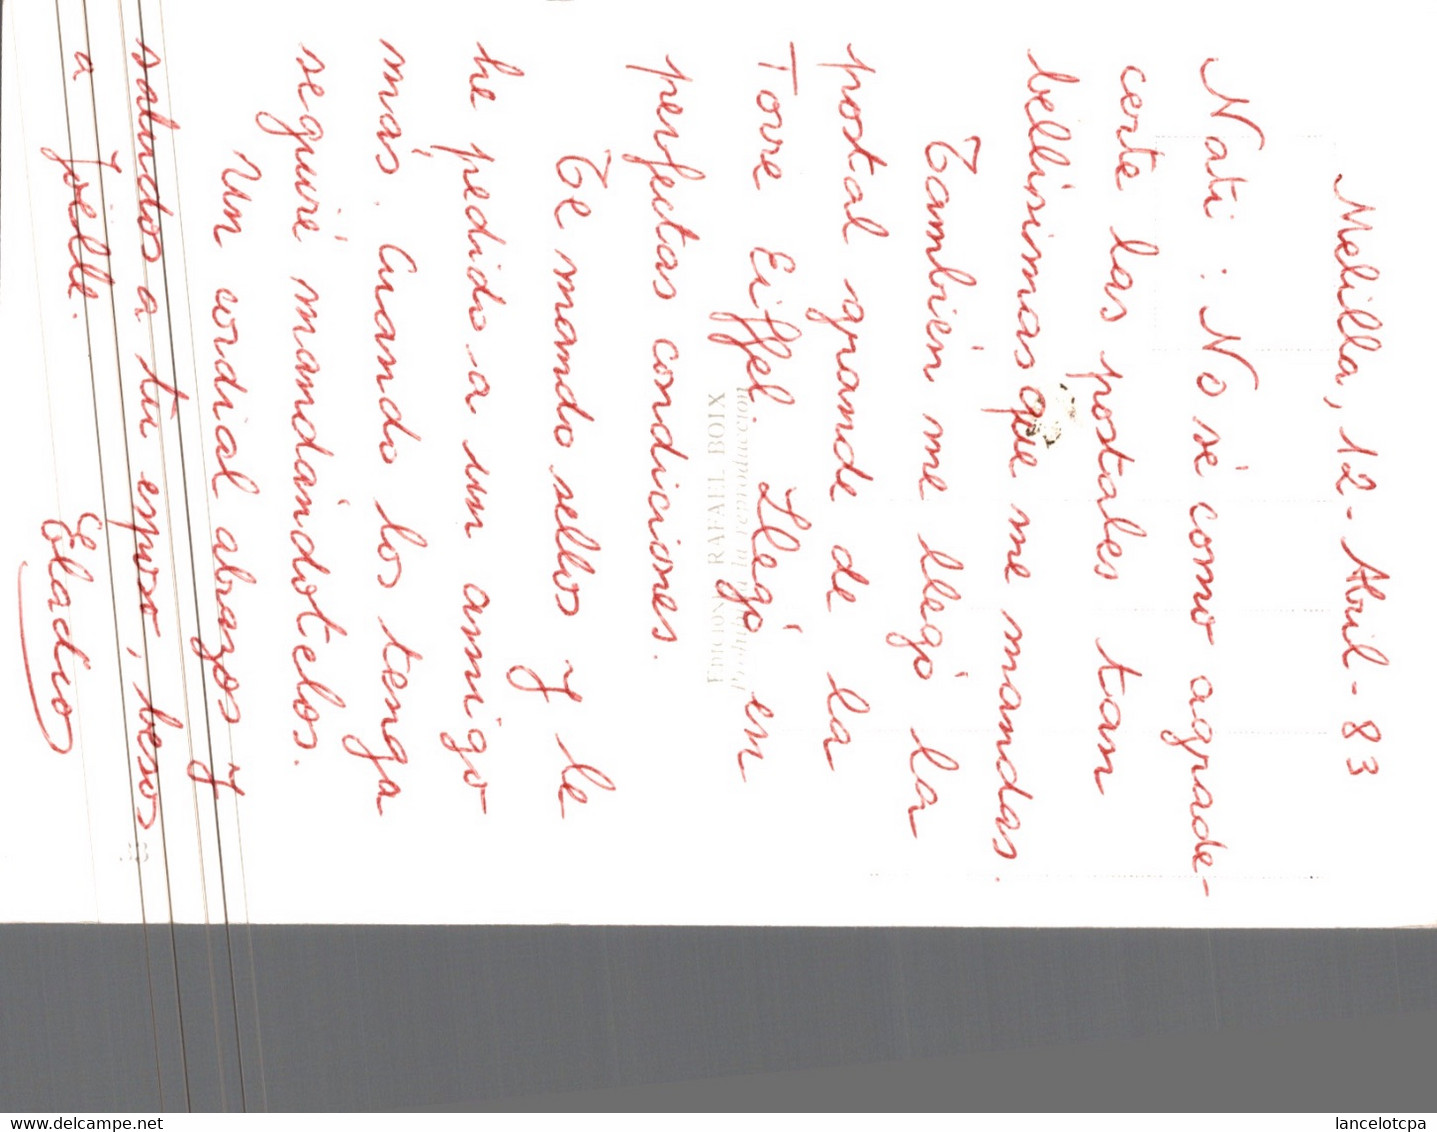 Melilla, 12-Abril-83
Nati: No sé como agrade-
certe las postales tan
bellisimas que me mandas.
También me llegó la
postal grande de la
Torre Eiffel. Llegó en
perfectas condiciones.
Te mando sellos y le
he pedido a un amigo
más. Cuando los tenga
seguiré mandándotelos.
Un cordial abrazos y
saludos a tu esposo, besos
a Joelle.
Eladio
EDICIONES RAFAEL BOIX
Prohibida la reproducción
lancelotcpa